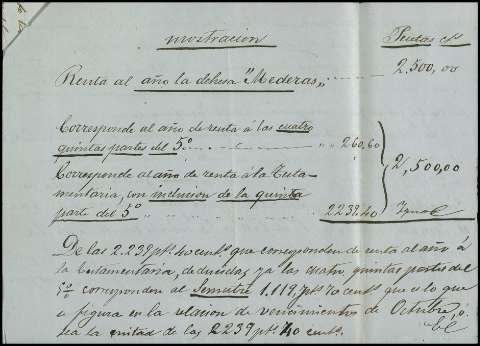 mostracion
Pesetas Cs
Renta al año la dehesa "Mederas" 2,500,00
Corresponde al año de renta á las cuatro
quintas partes del 5º 260,60
Corresponde al año de renta á la Testa-
mentaria, con inclusion de la quinta
parte del 5º 2239.40
2,500,00
Igual
De las 2.239 pts. 40 cents. que corresponden de renta al año á
la testamentaria, deducidas ya las cuatro quintas partes del
5º corresponden al Semestre 1.119 pts 70 cents que es lo que
figura en la relacion de vencimientos de Octubre, ó
sea la mitad de las 2239 pts 40 cents.